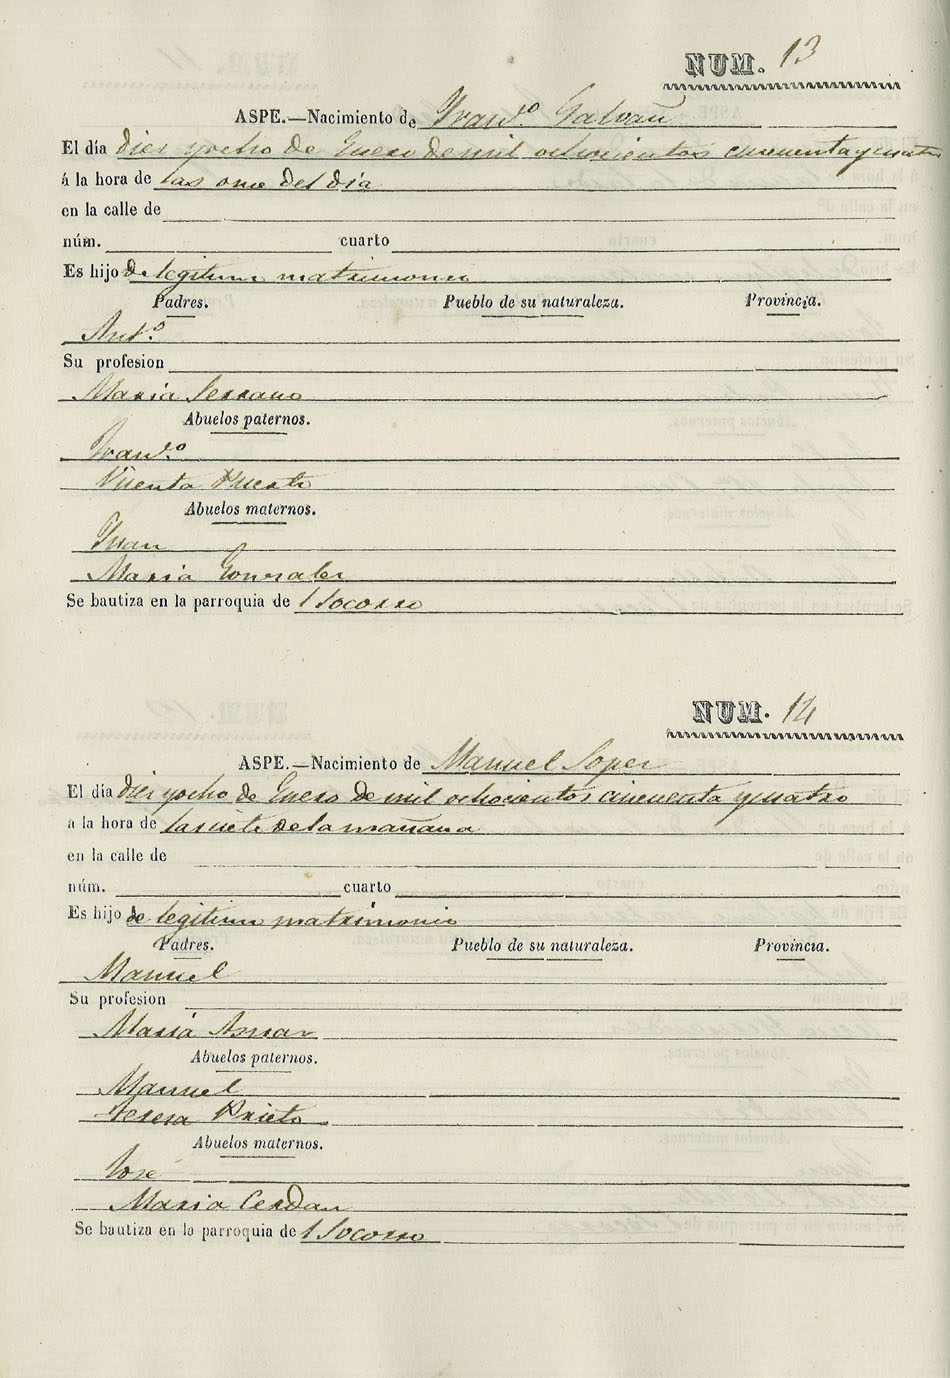 NUM. 13
ASPE.—Nacimiento de Franco. Galvañ
El día diez y ocho de Enero de mil ochocientos cincuenta y cuatro
á la hora de las once del día
en la calle de
núm. cuarto
Es hijo de legitimo matrimonio
Padres. Pueblo de su naturaleza. Provincia.
Anto.
Su profesion
Maria Serrano
Abuelos paternos.
Franco.
Vicenta Puerto
Abuelos maternos.
Juan
Maria Gonzalez
Se bautiza en la parroquia de l Socorro
NUM. 14
ASPE.—Nacimiento de Manuel Soper
El día diez y ocho de Enero de mil ochocientos cincuenta y cuatro
á la hora de las siete de la mañana
en la calle de
núm. cuarto
Es hijo de legitimo matrimonio
Padres. Pueblo de su naturaleza. Provincia.
Manuel
Su profesion
Maria Aznar
Abuelos paternos.
Manuel
Teresa Prieto
Abuelos maternos.
José
Maria Cerdan
Se bautiza en la parroquia de l Socorro